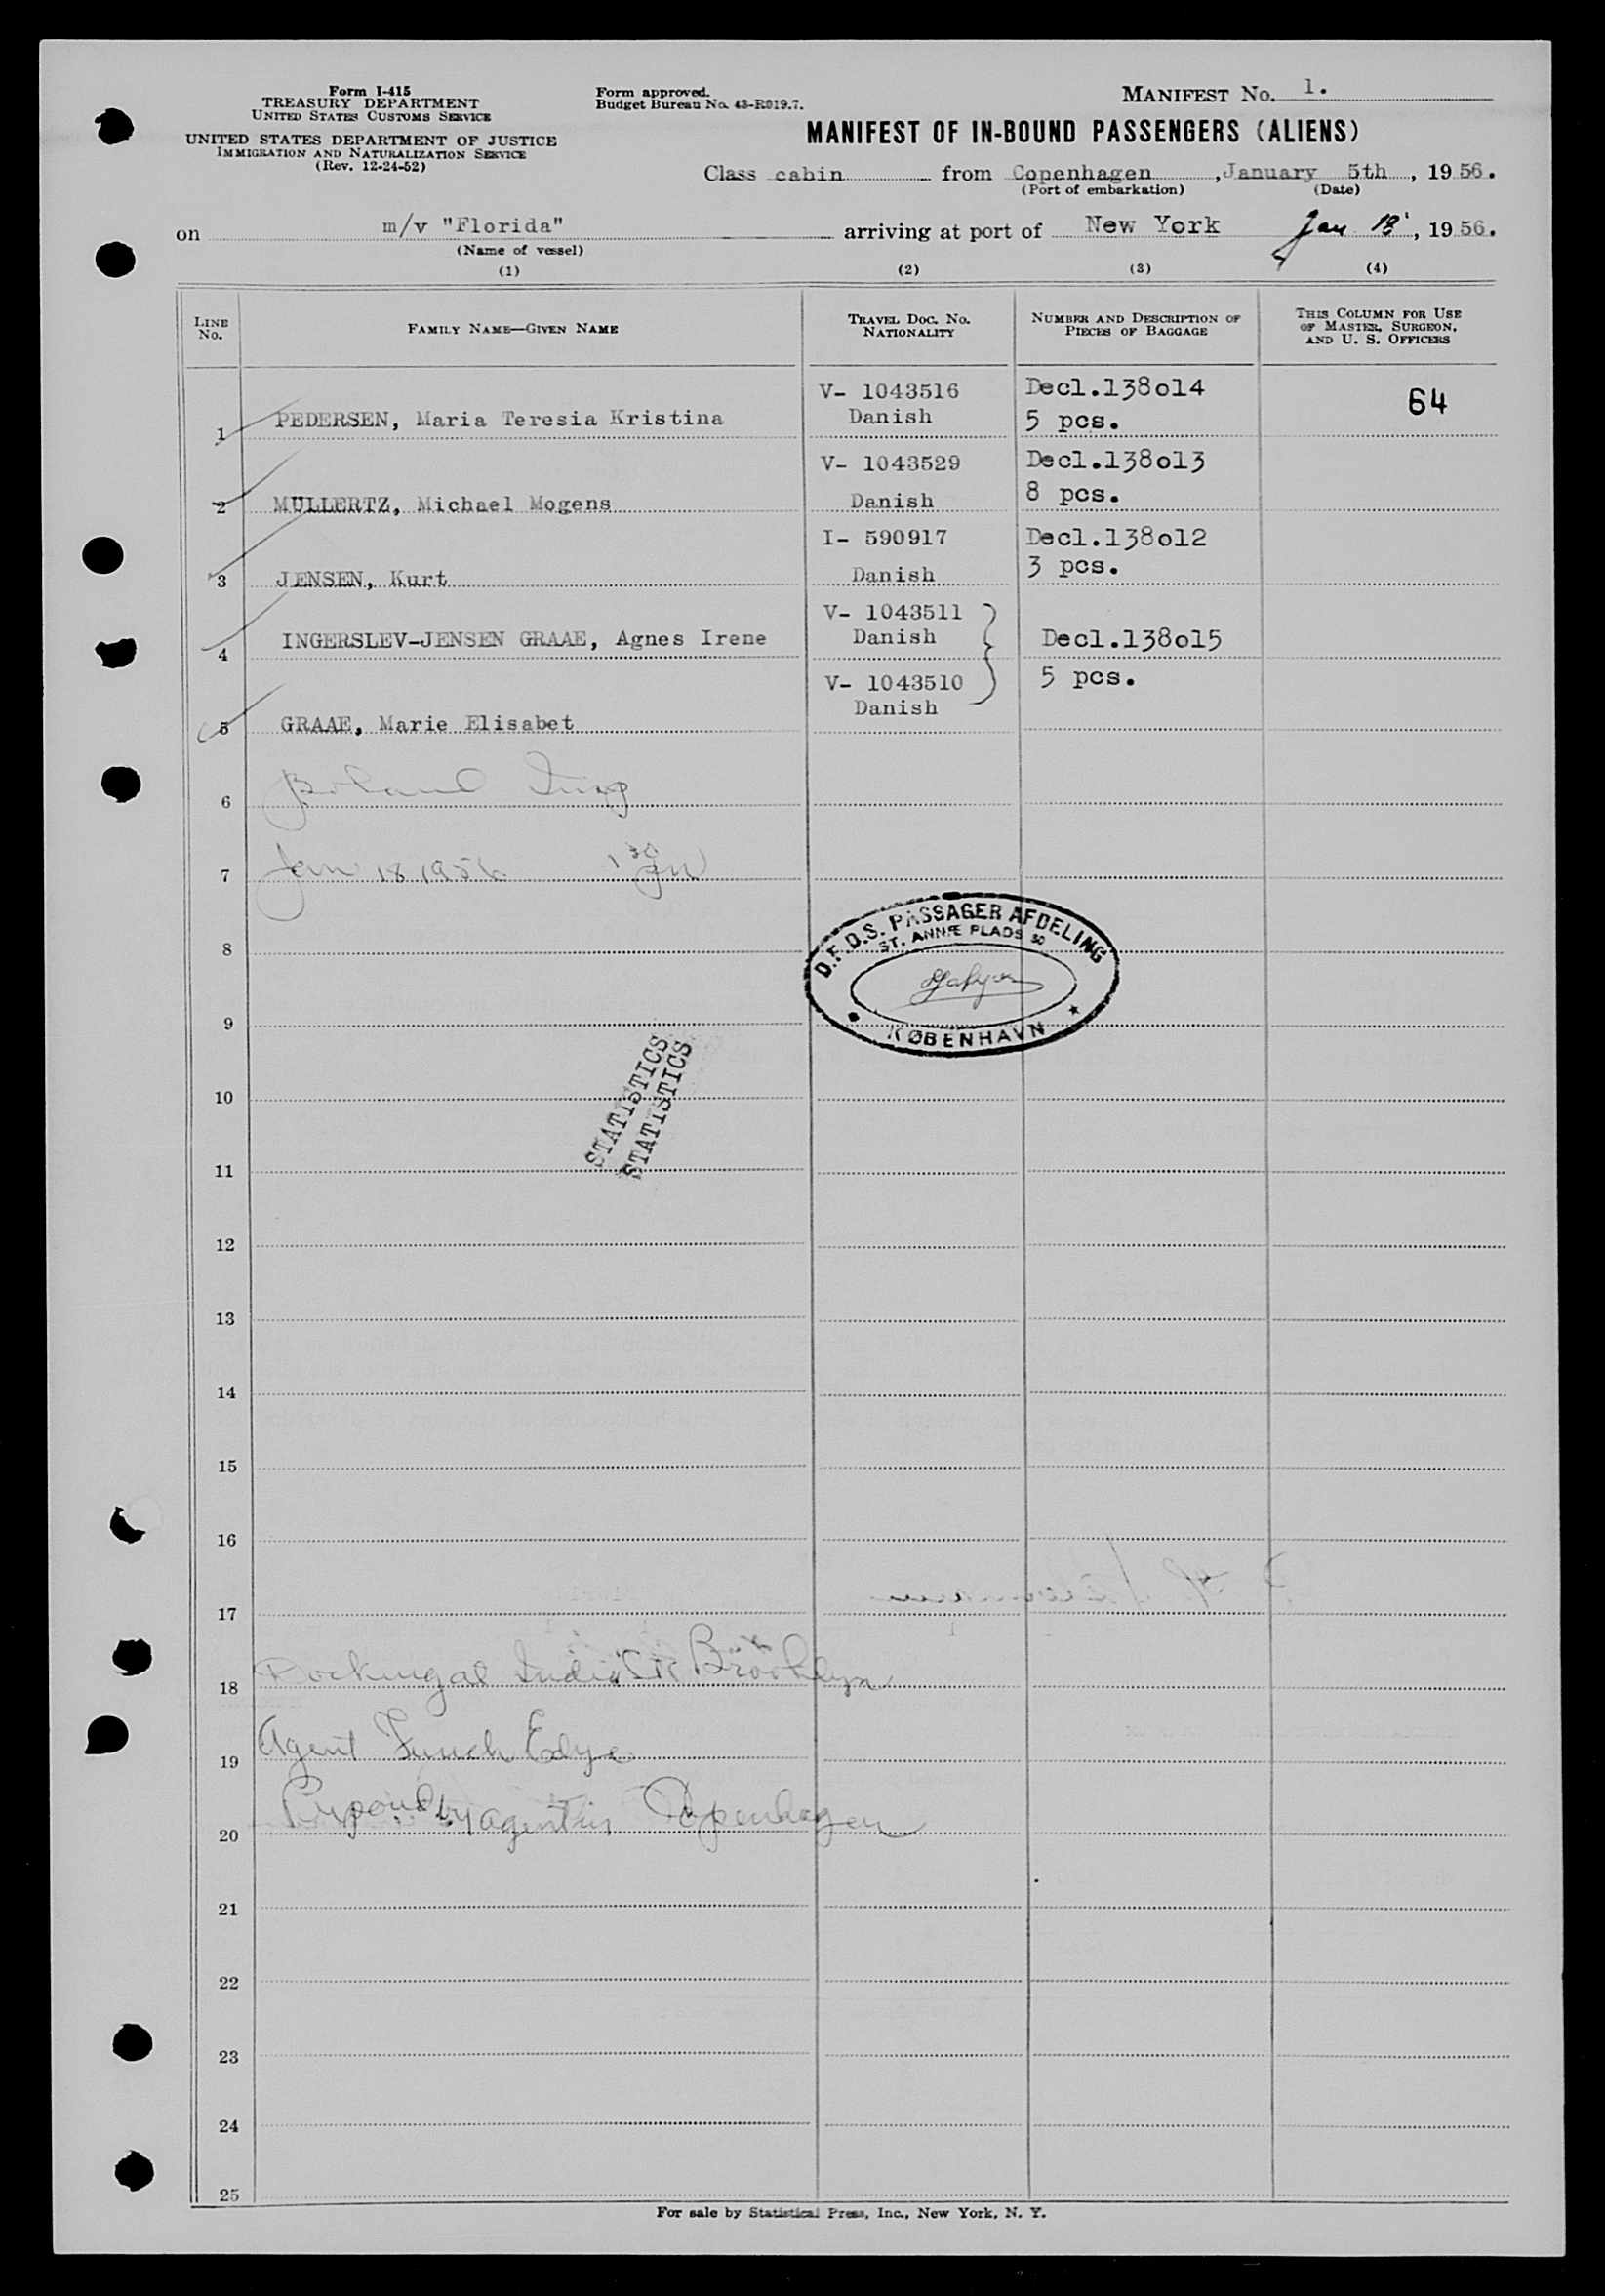 Form I-415
TREASURY DEPARTMENT
UNITED STATES CUSTOMS SERVICE
UNITED STATES DEPARTMENT OF JUSTICE
IMMIGRATION AND NATURALIZATION SERVICE
(Rev. 12-24-52)
Form approved.
Budget Bureau No. 43-R019.7.
MANIFEST No. 1.
MANIFEST OF IN-BOUND PASSENGERS (ALIENS)
Class cabin from Copenhagen, January 5th, 1956.
(Port of embarkation) (Date)
on m/v "Florida" arriving at port of New York Jan 18, 1956.
(Name of vessel)
(1) (2) (3) (4)
LINE No. FAMILY NAME—GIVEN NAME TRAVEL DOC. NO. NATIONALITY NUMBER AND DESCRIPTION OF PIECES OF BAGGAGE THIS COLUMN FOR USE OF MASTER, SURGEON, AND U. S. OFFICERS
1 PEDERSEN, Maria Teresia Kristina V- 1043516 Danish Decl.138o14 5 pcs. 64
2 MÜLLERTZ, Michael Mogens V- 1043529 Danish Decl.138o13 8 pcs.
3 JENSEN, Kurt I- 590917 Danish Decl.138o12 3 pcs.
4 INGERSLEV-JENSEN GRAAE, Agnes Irene V- 1043511 Danish Decl.138o15
5 GRAAE, Marie Elisabet V- 1043510 Danish 5 pcs.
6
7 Jan 18 1956 1 30
8
D.F.D.S. PASSAGER AFDELING
ST. ANNÆ PLADS 30
KØBENHAVN
9
STATISTICS
STATISTICS
10
11
12
13
14
15
16
17
18 Brooklyn
19 Agent Funch Edye
20 by agent in Copenhagen
21
22
23
24
25
For sale by Statistical Press, Inc., New York, N. Y.